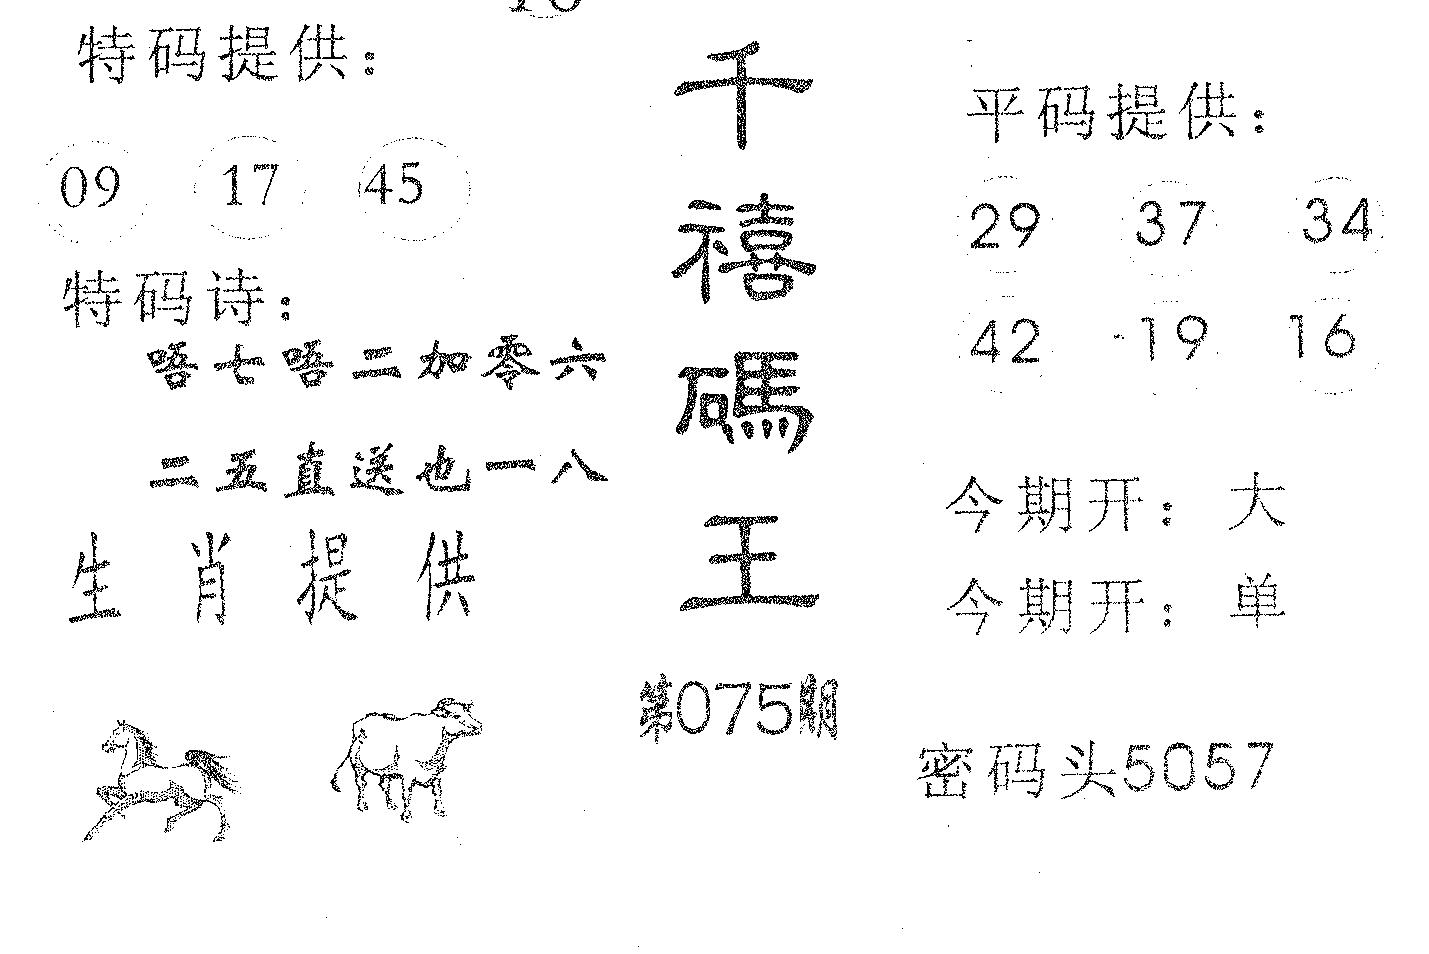 特码提供：
09 17 45
特码诗：
唔七唔二加零六
二五直送也一八
生肖提供
千禧碼王
第075期
平码提供：
29 37 34
42 19 16
今期开：大
今期开：单
密码头5057